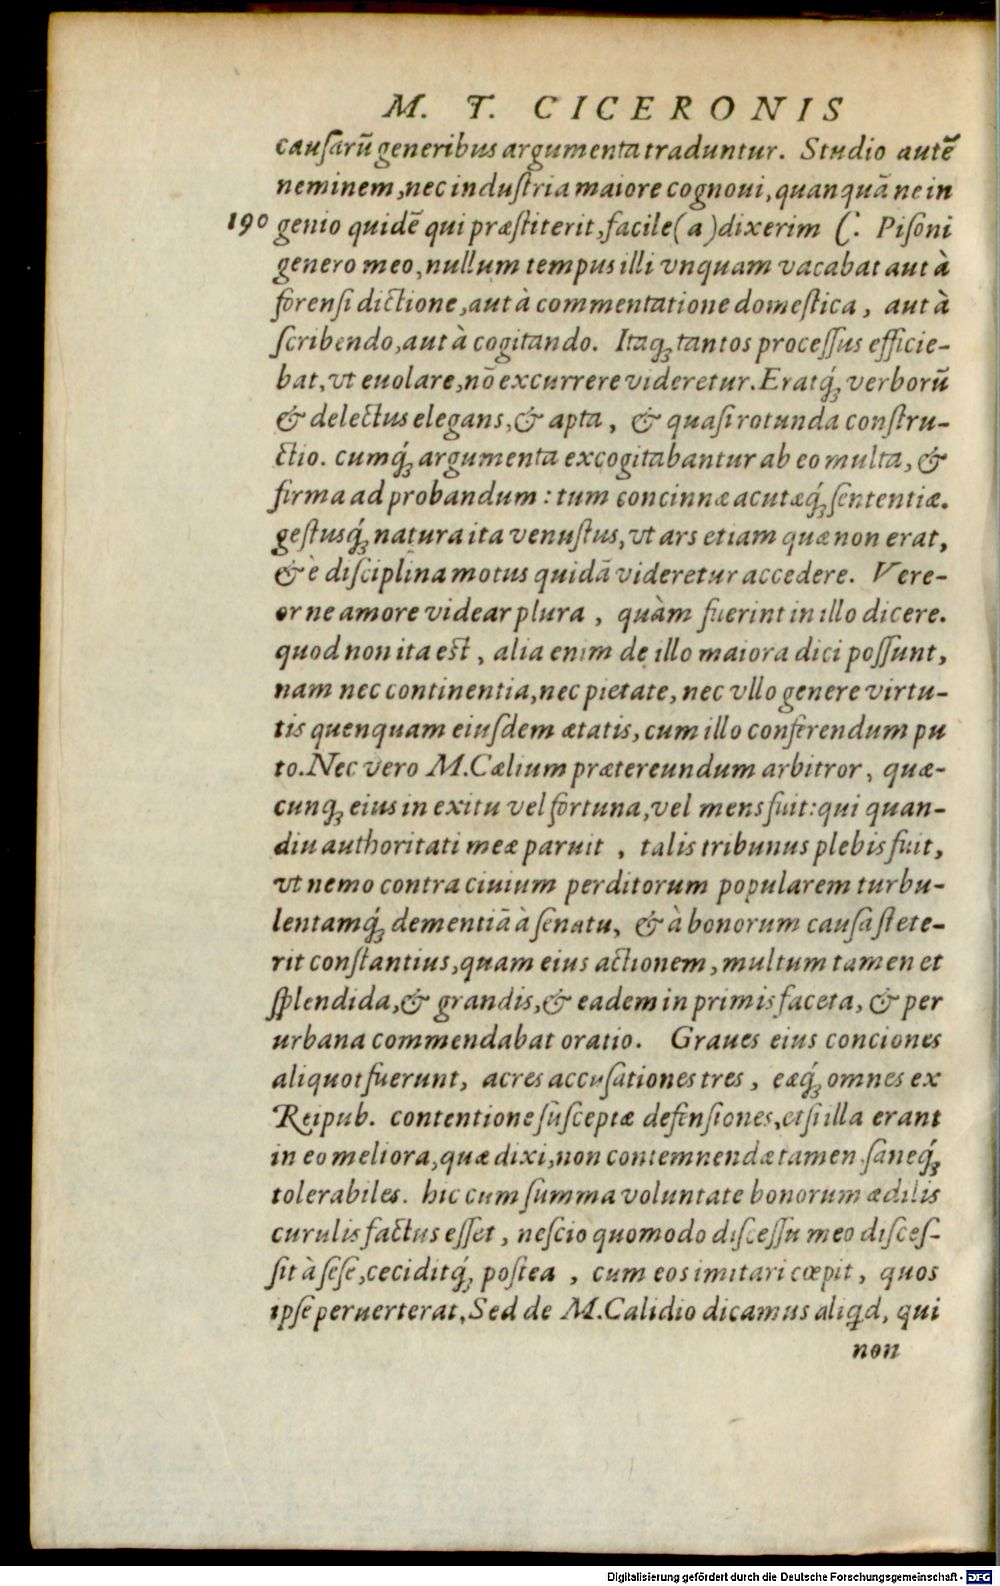 M. T. CICERONIS
causarū generibus argumenta traduntur. Studio autē
neminem, nec industria maiore cognoui, quanquā ne in
190 genio quidē qui præstiterit, facile (a) dixerim C. Pisoni
genero meo, nullum tempus illi vnquam vacabat aut à
forensi dictione, aut à commentatione domestica, aut à
scribendo, aut à cogitando. Itaq; tantos processus efficie-
bat, vt euolare, nō excurrere videretur. Eratq́; verborū
& delectus elegans, & apta, & quasi rotunda constru-
ctio. cumq́; argumenta excogitabantur ab eo multa, &
firma ad probandum: tum concinnæ acutæq́; sententiæ.
gestusq́; natura ita venustus, vt ars etiam quæ non erat,
& è disciplina motus quidā videretur accedere. Vere-
or ne amore videar plura, quàm fuerint in illo dicere.
quod non ita est, alia enim de illo maiora dici possunt,
nam nec continentia, nec pietate, nec vllo genere virtu-
tis quenquam eiusdem ætatis, cum illo conferendum pu
to. Nec vero M. Cælium prætereundum arbitror, quæ-
cunq; eius in exitu vel fortuna, vel mens fuit: qui quan-
diu authoritati meæ paruit, talis tribunus plebis fuit,
vt nemo contra ciuium perditorum popularem turbu-
lentamq́; dementiā à senatu, & à bonorum causa stete-
rit constantius, quam eius actionem, multum tamen et
splendida, & grandis, & eadem in primis faceta, & per
urbana commendabat oratio. Graues eius conciones
aliquot fuerunt, acres accusationes tres, eæq́; omnes ex
Reipub. contentione susceptæ defensiones, etsi illa erant
in eo meliora, quæ dixi, non contemnendæ tamen, saneq́;
tolerabiles. hic cum summa voluntate bonorum ædilis
curulis factus esset, nescio quomodo discessu meo disces-
sit à sese, ceciditq́; postea, cum eos imitari cœpit, quos
ipse peruerterat, Sed de M. Calidio dicamus aliqd, qui
non
Digitalisierung gefördert durch die Deutsche Forschungsgemeinschaft - DFG